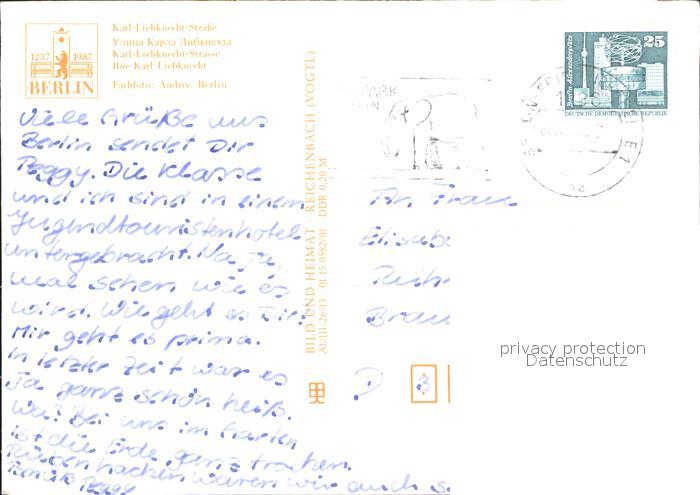 Karl-Liebknecht-Straße
Улица Карла Либкнехта
Karl-Liebknecht-Strasse
Rue Karl Liebknecht
Farbfoto: Andree, Berlin
1237 1987
BERLIN
Viele Grüße aus
Berlin sendet Dir
Peggy. Die Klasse
und ich sind in einem
Jugendtouristenhotel
untergebracht. Na ja,
mal sehen wie es
wird. Wie geht es Dir?
Mir geht es prima.
In letzter Zeit war es
ja ganz schön heiß.
wa? Bei uns im Garten
ist die Erde ganz trocken.
waren wir auch s
Peggy
BILD UND HEIMAT · REICHENBACH (VOGTL)
A1/III/26/13 01 15 0582/01 DDR 0,20 M
PARK
25
Berlin, Alexanderplatz
DEUTSCHE DEMOKRATISCHE REPUBLIK
An Frau
Elisab
Brau
D
privacy protection
Datenschutz